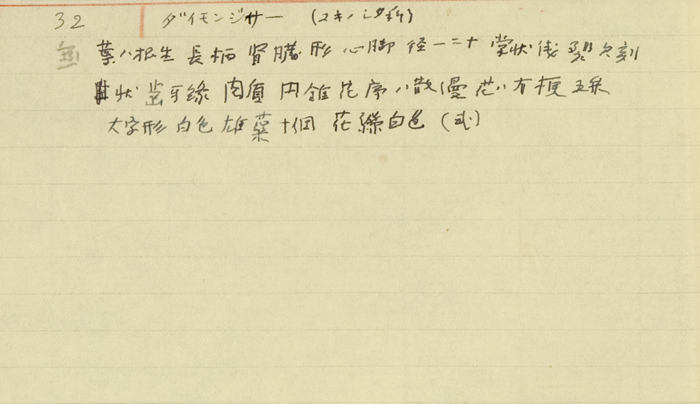 32 ダイモンジサー (ユキノシタ科)
無 葉ハ根生 長柄 腎臓形 心脚 径一二十 掌状浅裂 欠刻
状 歯牙縁 肉質 円錐花序ハ散漫 花ハ有梗 五朵
大字形 白色 雄蕊十個 花絲白色 (武)